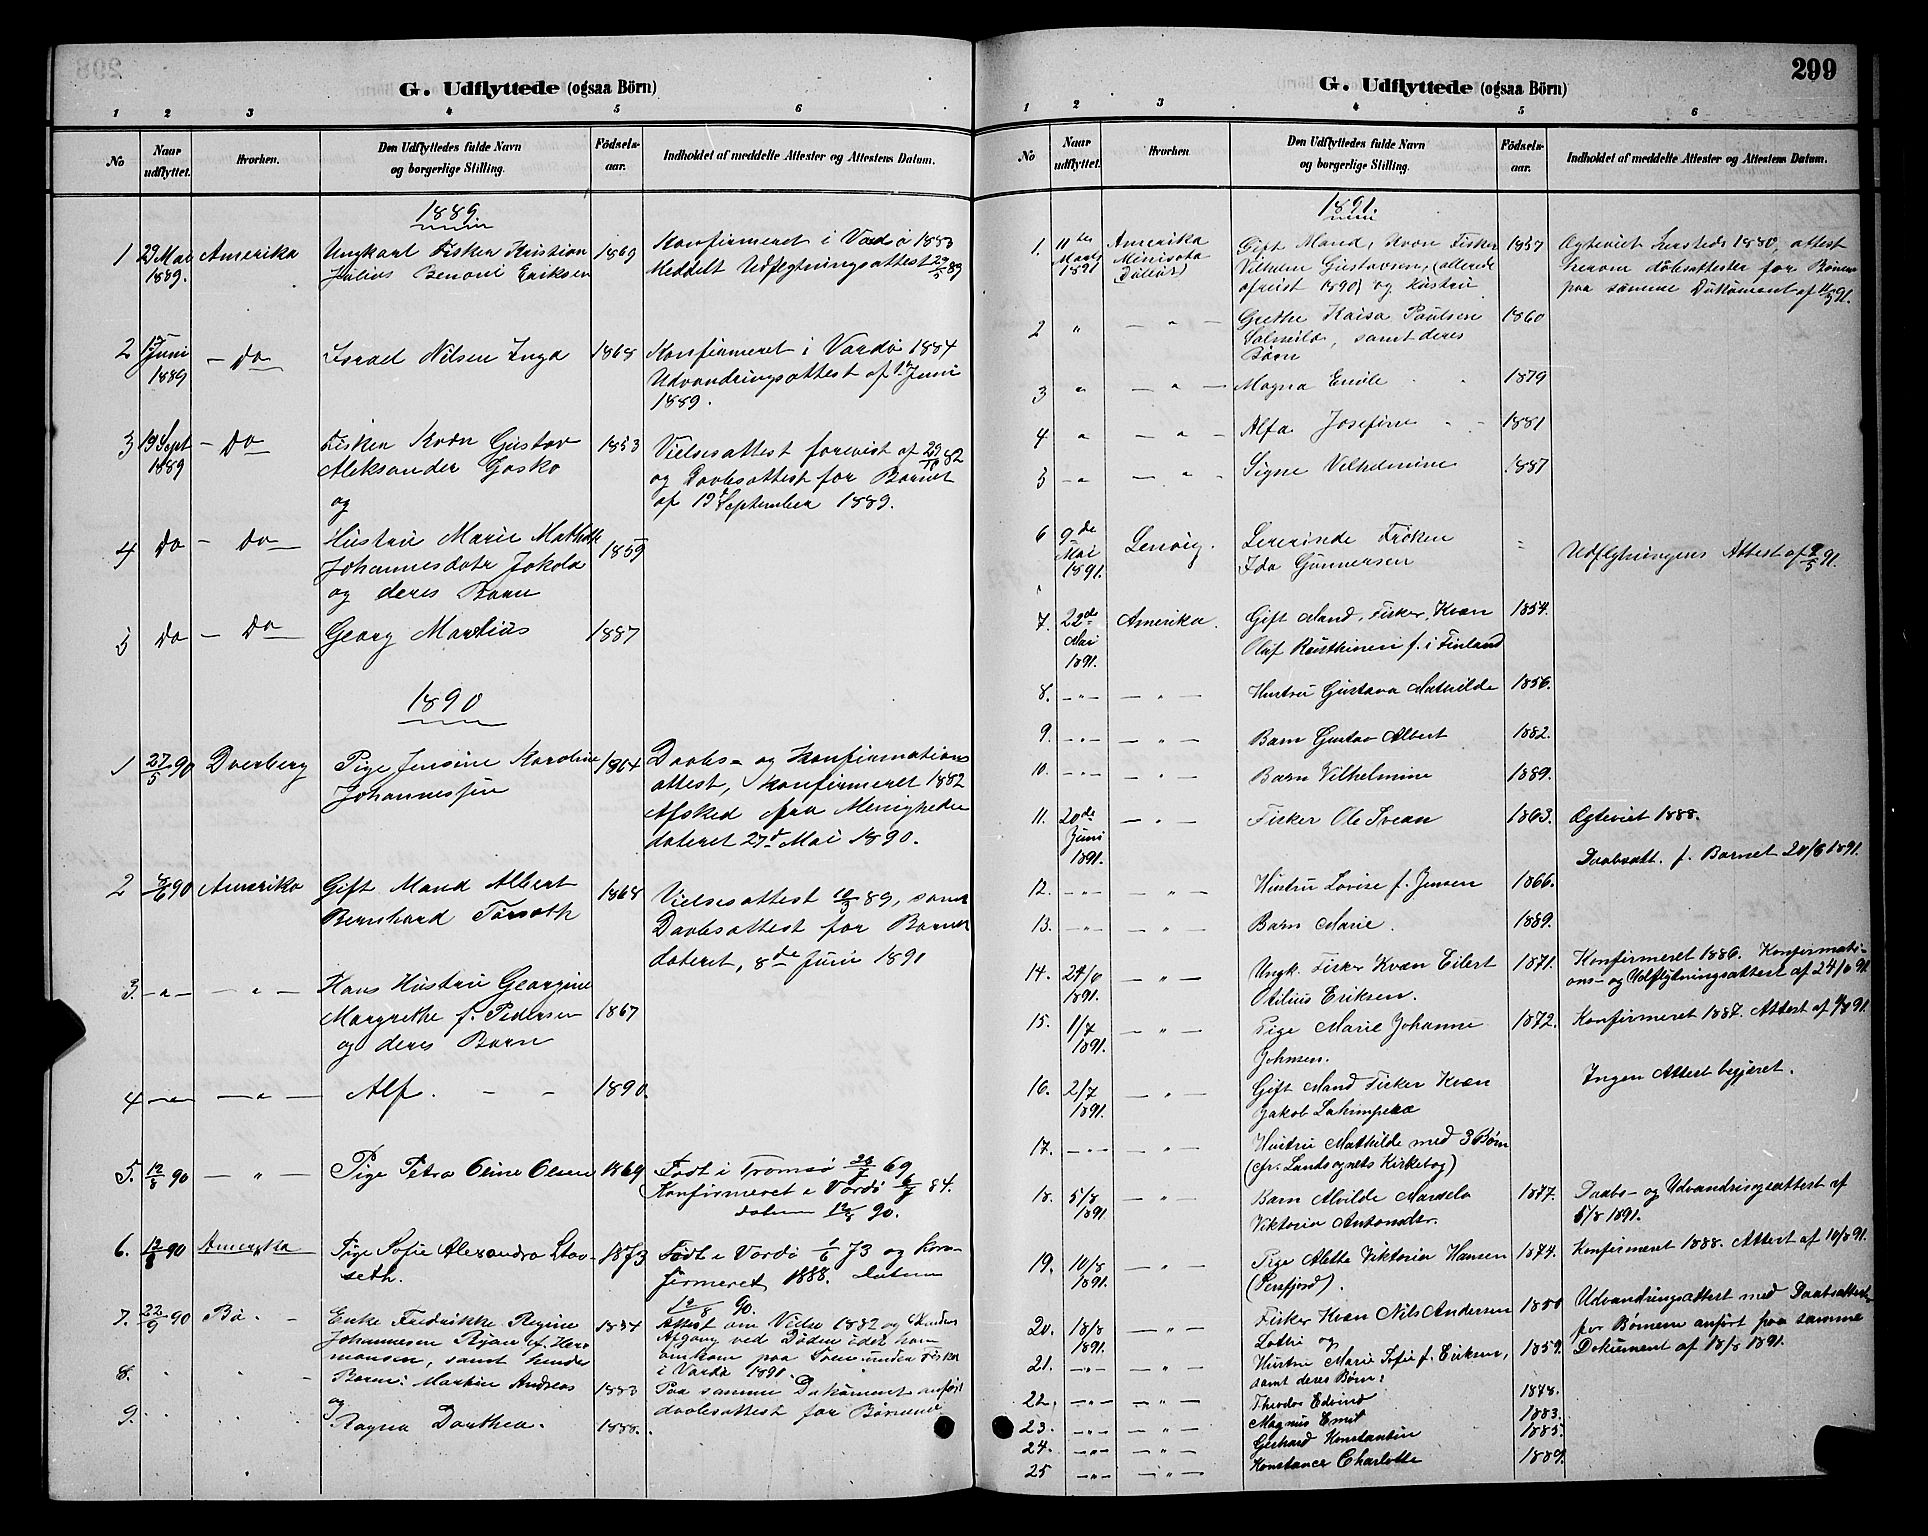 G. Udflyttede (ogsaa Börn)
1 2 3 4 5 6
No
Naar udflyttet.
Hvorhen.
Den Udflyttedes fulde Navn og borgerlige Stilling.
Födsels-aar.
Indholdet af meddelte Attester og Attestens Datum.
1889.
1 29 Mai 1889. Amerika Ungkarl Fisker Kristian 1869 Konfirmeret i Vardø 1883
Julius Benoni Eriksen Meddelt Udflytningsattest 29/5 89
2 Juni 1889 - Do Israel Nilsen Inga 1868 Konfirmeret i Vardø 1884
Udvandringsattest af Juni
1889.
3 19 Sept 1889 - Do Fisker Kvæn Gustav 1853 Vielsesattest forevist af 82
Aleksander Gosko og Daabsattest for Barnet
og af 19 September 1889.
4 Do - Do Hustru Marie Mathilde 1859
Johannesdatr Jokola
og deres Barn
5 Do - Do Georg Marelius 1887
1890
1 27/5 90 Dverberg Pige Jensine Karoline 1864 Daabs- og Konfirmations
Johannessen attest, Konfirmeret 1882
Afsked fra Menigheden
dateret 27d Mai 1890.
2 8/6 90 Amerika Gift Mand Albert 1868 Vielsesattest 89, samt
Bernhard Daabsattest for Barnet
dateret, 8de Juni 1890
3. -"- - " - Hans Hustru Georgine
Margrethe f. Pedersen 1867
og deres Barn
4 -"- - " - Alf. - - 1890.
5. 12/8 90 - " - Pige Petra Oline Olsen 1869 Født i Tromsø 69
Konfirmeret i Vardø 84.
datum 12/8 90.
6. 12/8 90 Amerika Pige Sofie Alexandra 1873 Født i Vardø 1/6 73 og kon-
seth. firmeret 1888. Datum
12/8 90.
7. 22/9 90 Bø - Enke Fredrikke Regine 1854 Attest om Vielse 1882 og
Johannesen f. Her Afgang ved Døden idet han
mansen, samt hendes omkom paa Søen under Fisken
8. " " Børn: Martin Andreas 1883 i Vardø 1890.
og Paa samme Dokument anført
9. " " Ragna Dorthea. 1888. daabsattest for Børnene
299
G. Udflyttede (ogsaa Börn)
1 2 3 4 5 6
No
Naar udflyttet.
Hvorhen
Den Udflyttedes fulde Navn og borgerlige Stilling.
Födsels-aar.
Indholdet af meddelte Attester og Attestens Datum.
1891.
1. 11te Marts 1891 Amerika Gift Mand, Kvæn Fisker 1857 Ægteviet 1880, attest
Minisota Vilhelm Gustavsen, (allerede herom døbsattester for Børnene
(Dulut) afreist 1890) og Hustru paa samme Dokument af 91.
2 " - " - Grethe Kaisa Paulsen 1860
, samt deres
Børn
3 " - " - Magna 1879
4 " - " - Alfa Josefine 1881
5 -"- - " Signe Vilhelmine 1887
6 9de Mai 1891. Lenvig. Lererinde Frøken = Udflytningens Attest af 91.
Ida Gunnersen
7. 22de Mai 1891. Amerika. Gift Mand, Fisker, Kvæn 1854.
Olaf f. i Finland
8. -"- - " - Hustru Gustava Mathilde 1856.
9. -"- - " - Barn Gustav Albert 1882.
10. -"- - " - Barn Vilhelmine 1889.
11. 20de Juni 1891. - " - Fisker Ole Svean 1863. Ægteviet 1888.
Daabsatt. f. Barnet 20/6 1891.
12. -"- " - Hustru Lovise f. Jensen 1866.
13. -"- - " - Barn Marie. 1889.
14. 24/6 1891. - " - Ungk. Fisker Kvæn Eilert 1871. Konfirmeret 1886. Konfirmati-
Otilius Eriksen. ons- og Udflytningsattest af 24/6 91.
15. 1/7 1891. - " - Pige Marie Johanne 1872. Konfirmeret 1887. Attest af 91.
Johnsen.
16. 2/7 1891. - " - Gift Mand Fisker Kvæn Ingen Attest begjæret.
Jakob
17. -"- - " - Hustru Mathilde med 3 Børn
(cfr. Landsognets Kirkebog)
18. 5/8 1891 - " - Barn Alvilde 1877. Daabs- og Udvandringsattest af
Viktoria Antonsdtr. 5/8 1891.
19. 10/8 1891. - " - Pige Alette Viktoria Hansen 1874. Konfirmeret 1888. Attest af 10/8 91.
(Persfjord).
20. 18/8 1891. - " - Fisker Kvæn Nils Andersen 1850 Udvandringsattest med Daabsattest
og for Børnene anført paa samme
21. -"- - " - Hustru Marie Sofie f. Eriksen, 1859. Dokument af 18/8 1891.
samt deres Børn:
22. -"- - " - Theodor Edvind 1878.
23. -"- - " - Magnus Emil 1883.
24. -"- - " - Gerhard Konstantin 1885.
25 -"- - " - Konstance Charlotte 1889.